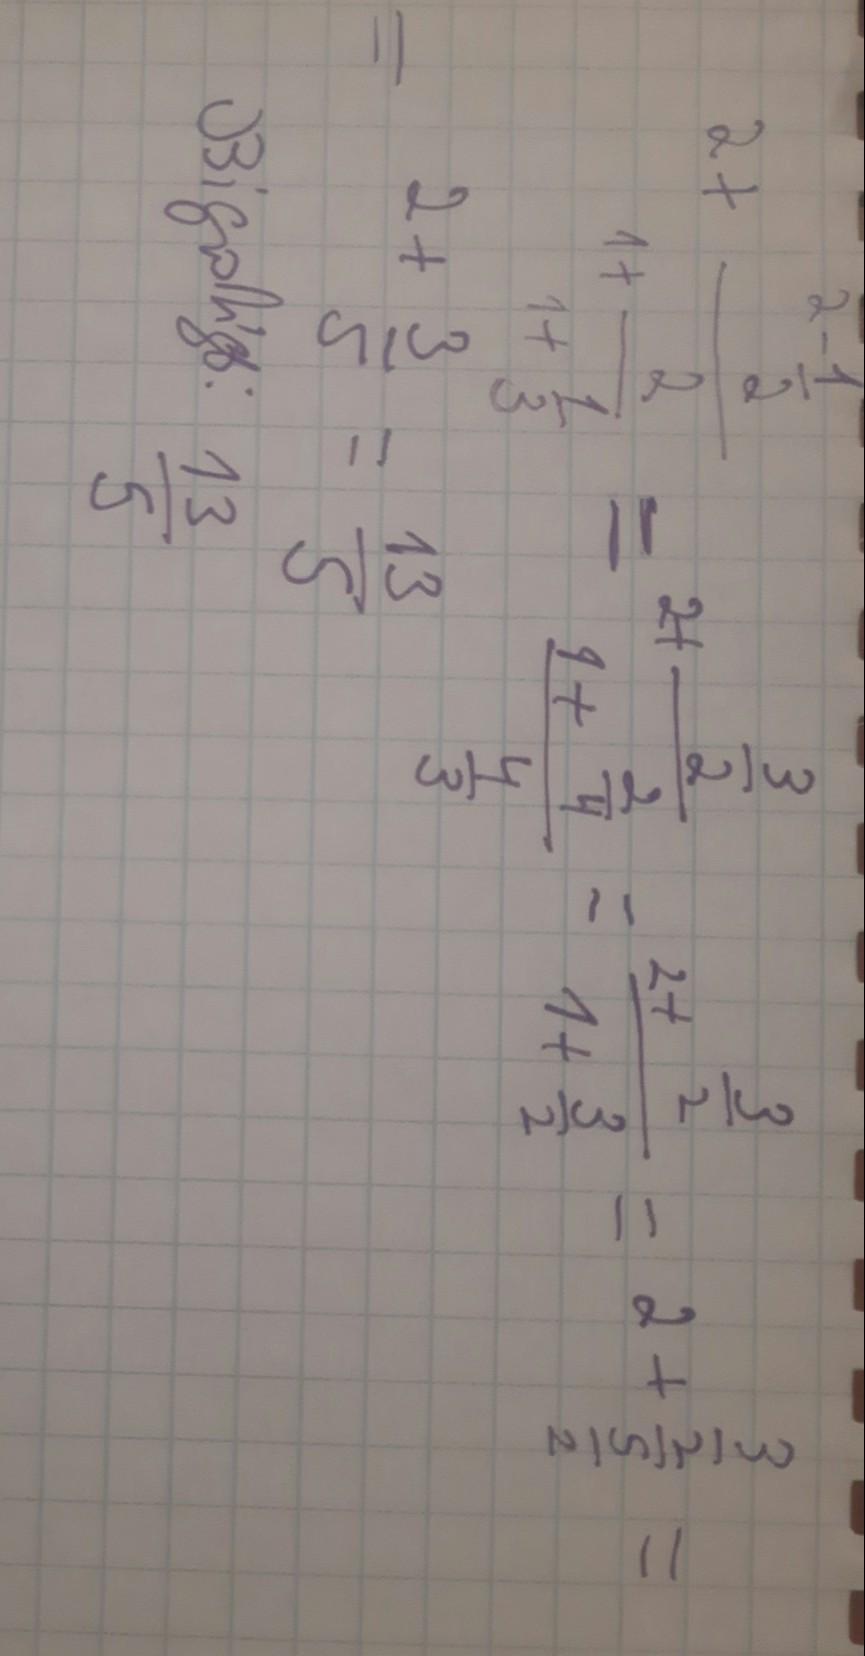 2 + \frac{2 - \frac{1}{2}}{1 + \frac{2}{1 + \frac{1}{3}}} = 2 + \frac{\frac{3}{2}}{\frac{1 + \frac{2}{4}}{\frac{4}{3}}} = 2 + \frac{\frac{3}{2}}{1 + \frac{3}{2}} = 2 + \frac{\frac{3}{2}}{\frac{5}{2}} =
= 2 + \frac{3}{5} = \frac{13}{5}
Відповідь: \frac{13}{5}